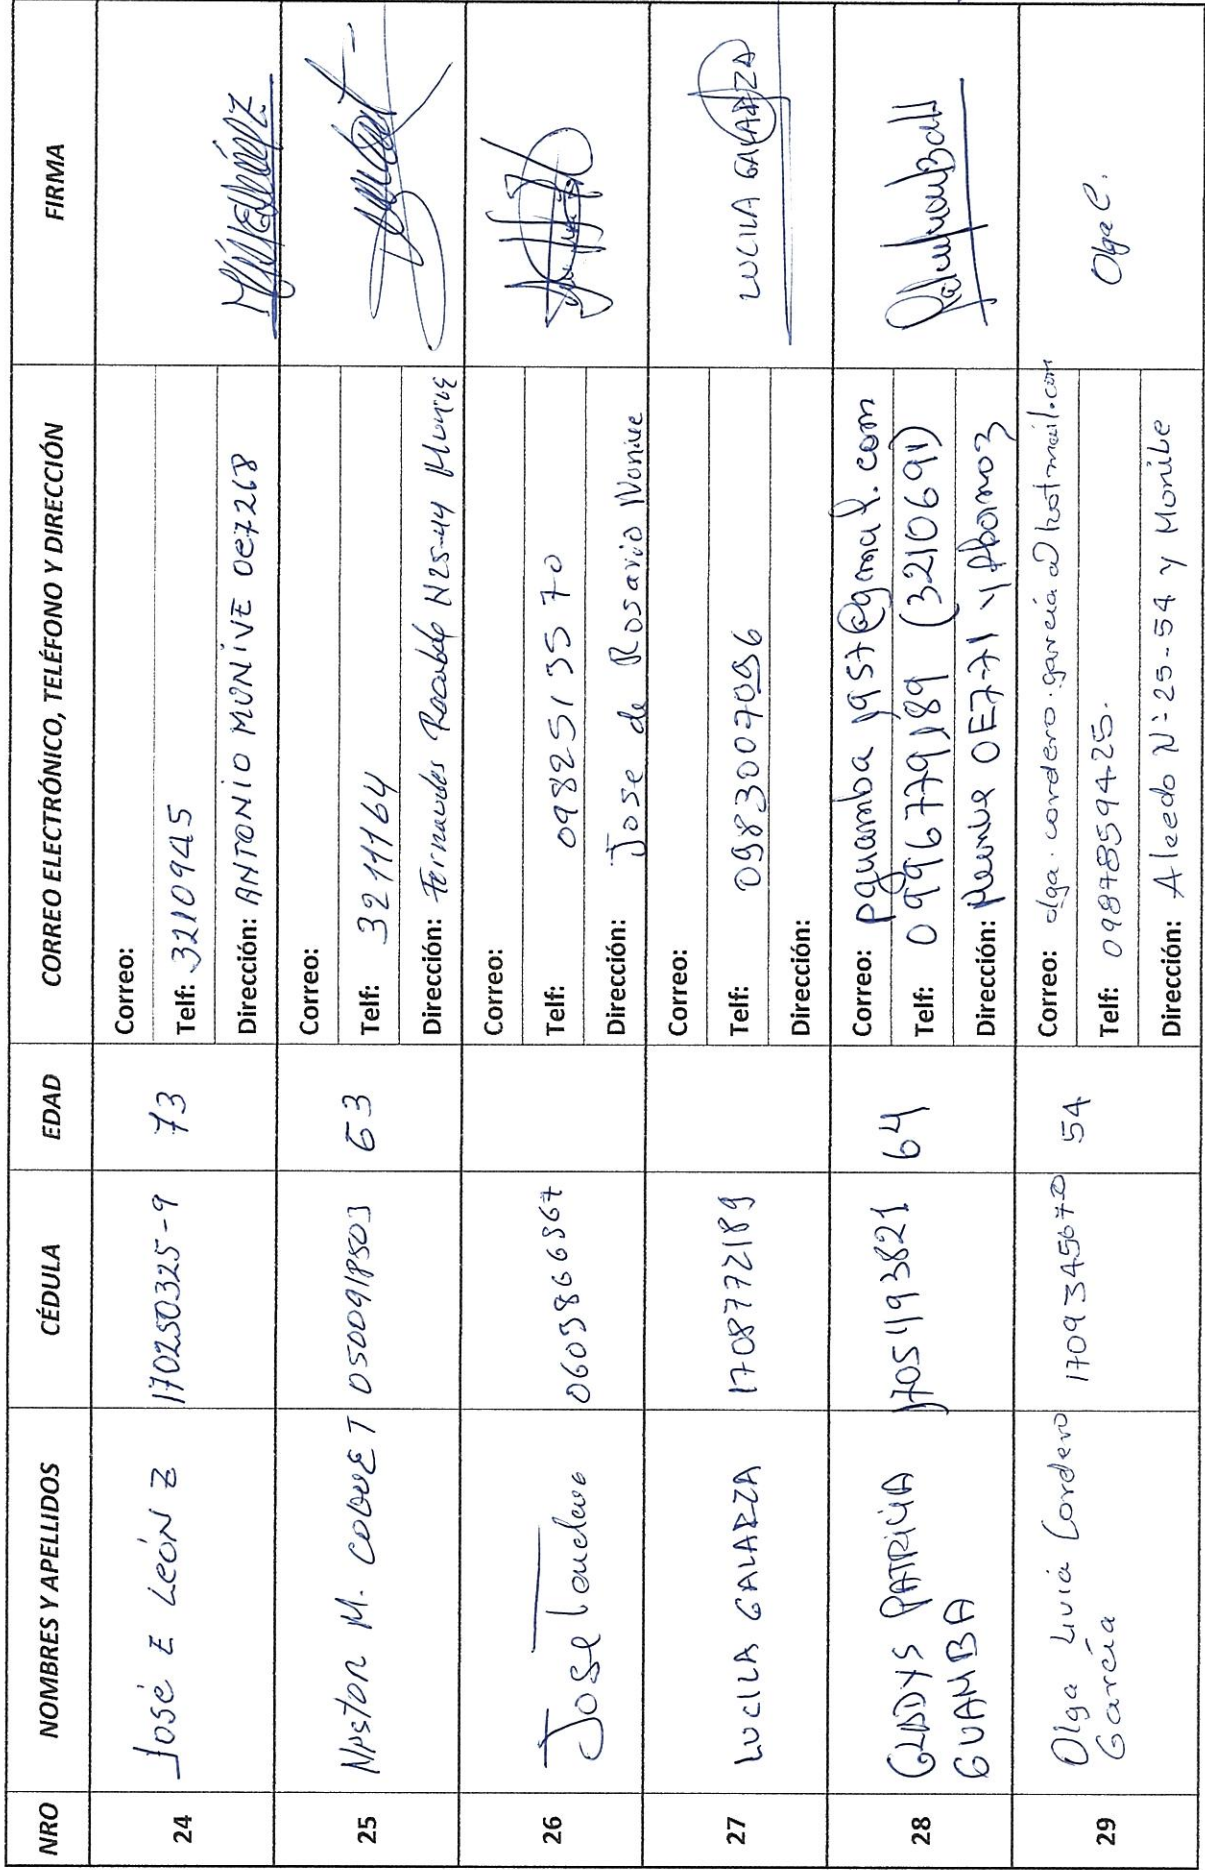 NRO NOMBRES Y APELLIDOS CÉDULA EDAD CORREO ELECTRÓNICO, TELÉFONO Y DIRECCIÓN FIRMA
24 José E León Z 170250325-9 73
Correo:
Telf: 3210945
Dirección: ANTONIO MUNIVE Oe7268
25 Nestor M. 0500918503 63
Correo:
Telf: 3211164
Dirección: N25-44 Munive
26 Jose 0603866367
Correo:
Telf: 0982513570
Dirección: Jose de Rosario Munive
27 LUCILA GALARZA 1708772189
Correo:
Telf: 0983007096
Dirección:
LUCILA GALARZA
28 GLADYS PATRICIA
GUAMBA 1705493821 64
Correo: pguamba1957@gmail.com
Telf: 0996779189 (3210691)
Dirección: Munive OE7-71 y
29 Olga Livia Cordero
García 1709345670 54
Correo: olga.cordero.garcia@hotmail.com
Telf: 0987859425.
Dirección: N: 25-54 y Munibe
Olga C.